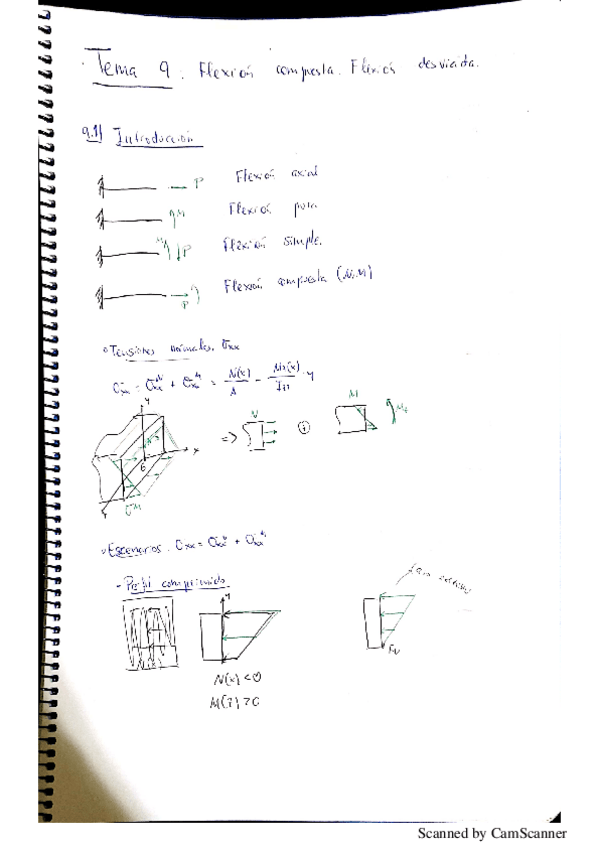 Tema 9. Flexión compuesta. Flexión desviada.
9.1) Introducción
P Flexión axial
M Flexión pura
M P Flexión simple.
P Flexión compuesta (N,M)
Tensiones normales. σxx
σxx = σxx^N + σxx^M = N(x)/A - Mz(x)/Izz · y
y
N
M
=>
x
G
σ^M
Escenarios. σxx = σxx^N + σxx^M
- Perfil comprimido
y
N(x) < 0
M(?) > 0
Scanned by CamScanner